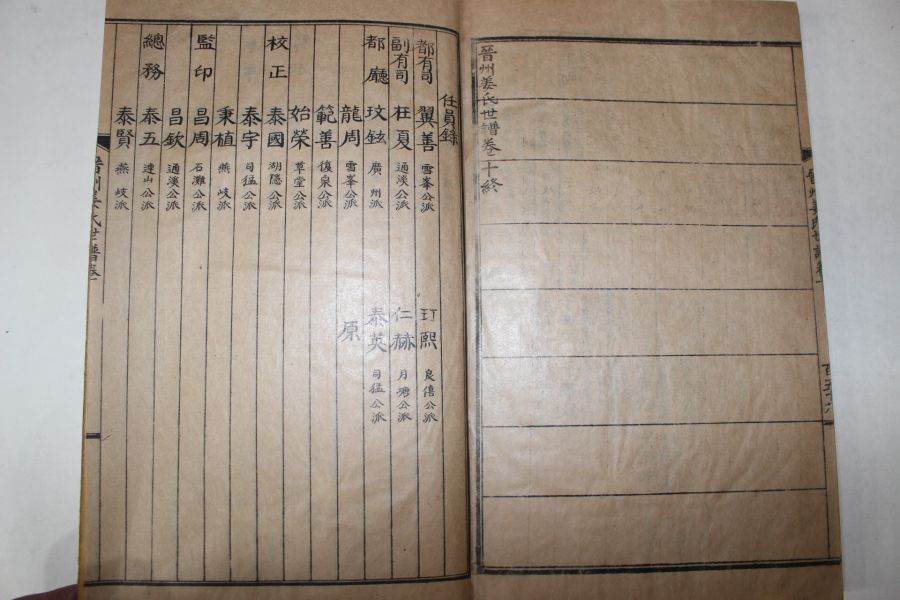 晉州姜氏世譜卷之十終
任員錄
都有司 翼善 雪峯公派 玎熙 良僖公派
副有司 在夏 通溪公派 仁赫 月塘公派
都廳 玟鉉 廣州派 泰英 司猛公派
龍周 雪峯公派 原
範善 復泉公派
始榮 草堂公派
校正 泰國 湖隱公派
泰宇 司猛公派
秉植 燕岐派
監印 昌周 石灘公派
昌欽 通溪公派
總務 泰五 蓮山公派
泰賢 燕岐派
晉州姜氏世譜卷